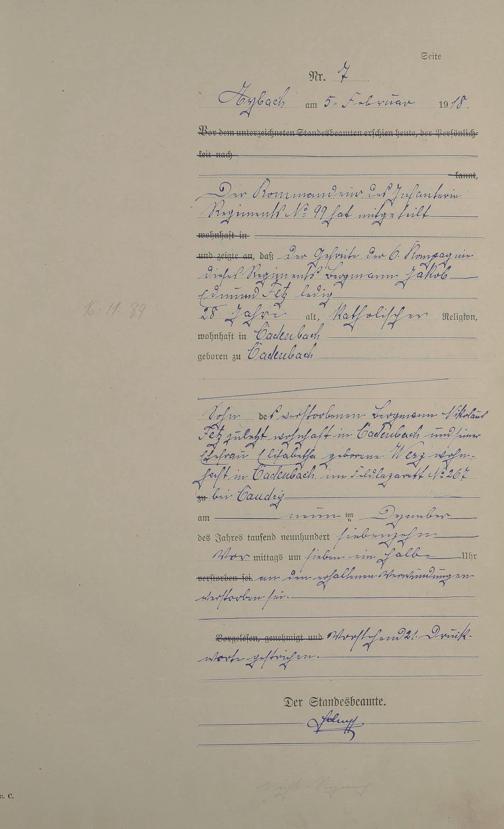 Seite
Nr. 7
Arzbach am 5. Februar 1918.
Vor dem unterzeichneten Standesbeamten erschien heute, der Persönlich-
keit nach
kannt,
Der Kommandeur des Infanterie
Regiments No 99 hat mitgeteilt
wohnhaft in
und zeigte an, daß der Gefreite der 6. Kompagnie
dieses Regiments Bergmann Jakob
Edmund Fetz ledig
28 Jahre alt, katholischer Religion,
16.11.89
wohnhaft in Cadenbach
geboren zu Cadenbach
Sohn des verstorbenen Bergmann Nikolaus
Fetz zuletzt wohnhaft in Cadenbach und seiner
Ehefrau Elisabetha geborene Merz wohn-
haft in Cadenbach im Feldlazarett No 267
zu bei Caudry
am neun ten Dezember
des Jahres tausend neunhundert siebenzehn
Vor mittags um sieben ein halb Uhr
verstorben sei, an den erhaltenen Verwundungen
verstorben sei.
Vorgelesen, genehmigt und Vorstehend 21 Druck-
worte gestrichen.
Der Standesbeamte.
v. C.